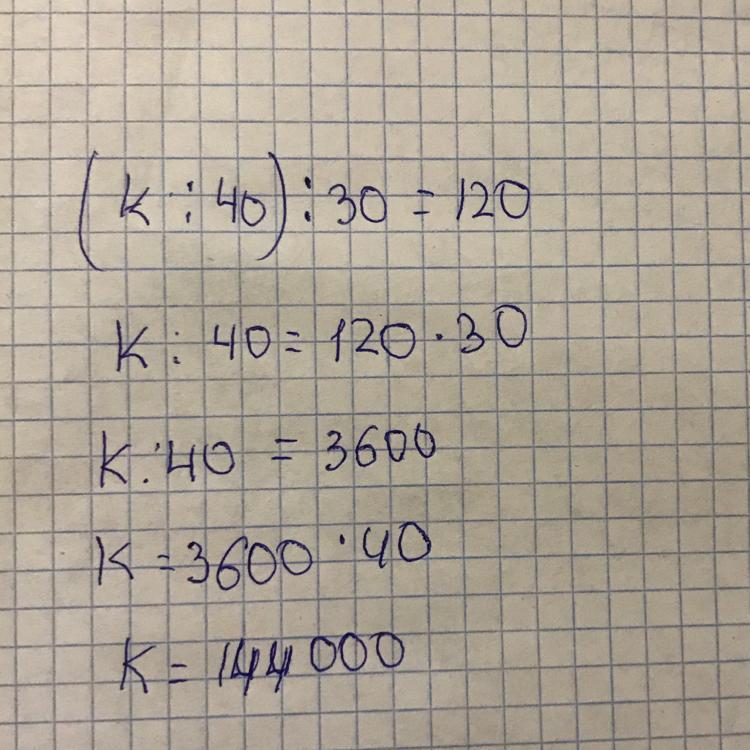 (K : 40) : 30 = 120
K : 40 = 120 · 30
K : 40 = 3600
K = 3600 · 40
K = 144 000